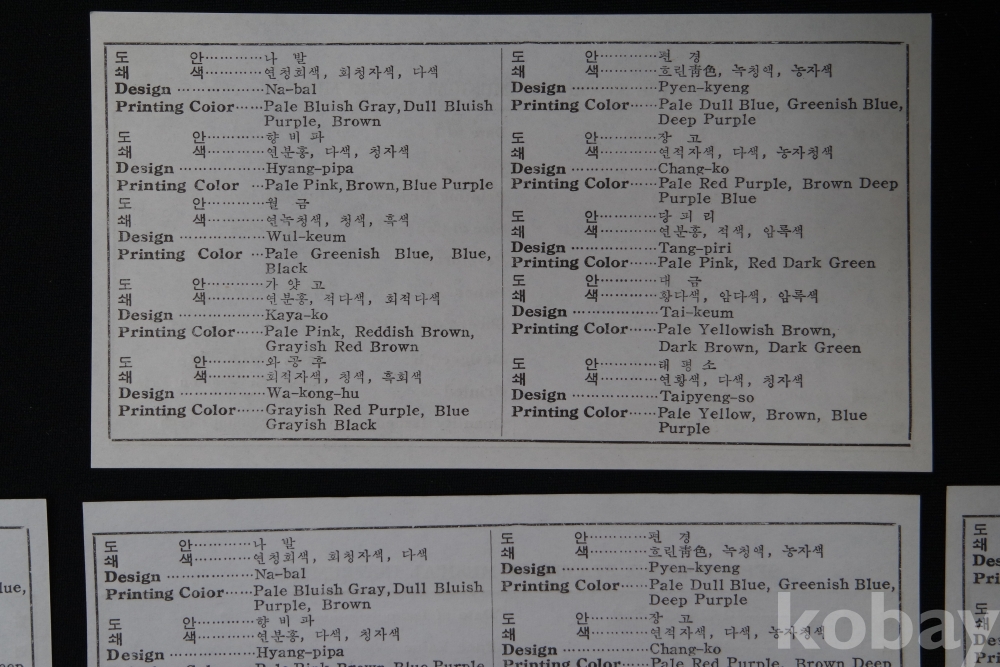 도 안············나 발
쇄 색············연청회색, 회청자색, 다색
Design ··················Na-bal
Printing Coior······Pale Bluish Gray, Dull Bluish
Purple, Brown
도 안············향 비 파
쇄 색············연분홍, 다색, 청자색
Design ··················Hyang-pipa
Printing Color ···Pale Pink, Brown, Blue Purple
도 안············월 금
쇄 색············연녹청색, 청색, 흑색
Design ··················Wul-keum
Printing Color ···Pale Greenish Blue, Blue,
Black
도 안············가 얏 고
쇄 색············연분홍, 적다색, 회적다색
Design ··················Kaya-ko
Printing Color······Pale Pink, Reddish Brown,
Grayish Red Brown
도 안············와 공 후
쇄 색············회적자색, 청색, 흑회색
Design ··················Wa-kong-hu
Printing Color······Grayish Red Purple, Blue
Grayish Black
도 안············편 경
쇄 색············흐린靑色, 녹청색, 농자색
Design ··················Pyen-kyeng
Printing Color······Pale Dull Blue, Greenish Blue,
Deep Purple
도 안············장 고
쇄 색············연적자색, 다색, 농자청색
Design ··················Chang-ko
Printing Color······Pale Red Purple, Brown Deep
Purple Blue
도 안············당 피 리
쇄 색············연분홍, 적색, 암록색
Design ··················Tang-piri
Printing Color······Pale Pink, Red Dark Green
도 안············대 금
쇄 색············황다색, 암다색, 암록색
Design ··················Tai-keum
Printing Color······Pale Yellowish Brown,
Dark Brown, Dark Green
도 안············태 평 소
쇄 색············연황색, 다색, 청자색
Design ··················Taipyeng-so
Printing Color······Pale Yellow, Brown, Blue
Purple
lue,
도 안············나 발
쇄 색············연청회색, 회청자색, 다색
Design ··················Na-bal
Printing Coior······Pale Bluish Gray, Dull Bluish
Purple, Brown
도 안············향 비 파
쇄 색············연분홍, 다색, 청자색
Design ··················Hyang-pipa
Pale Pink, Brown, Blue Purple
도 안············편 경
쇄 색············흐린靑色, 녹청색, 농자색
Design ··················Pyen-kyeng
Printing Color······Pale Dull Blue, Greenish Blue,
Deep Purple
도 안············장 고
쇄 색············연적자색, 다색, 농자청색
Design ··················Chang-ko
Printing Color······Pale Red Purple, Brown Deep
도
쇄
Des
Pri
도
쇄
De
Pri
kobay